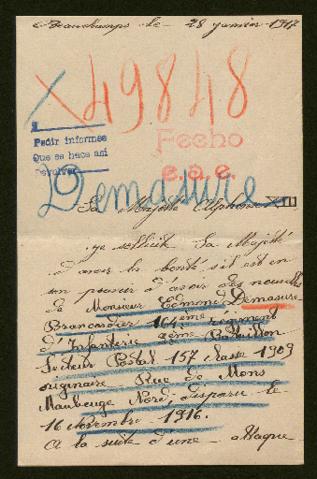 Beauchamps le 28 janvier 1917
X49848
Pedir informes
Que se haga así
Devolver
Fecho
e.a.e.
Demasure
Sa Majesté Alphonse XIII
je sollicite Sa Majesté
d'avoir la bonté s'il est en
son pouvoir d'avoir des nouvelles
de Monsieur Edmond Demasure
Brancardier 164ème régiment
d'Infanterie Bataillon
Secteur Postal 157 classe 1909
originaire Rue de Mons
Maubeuge Nord, disparu le
16 Novembre 1916.
A la suite d'une attaque